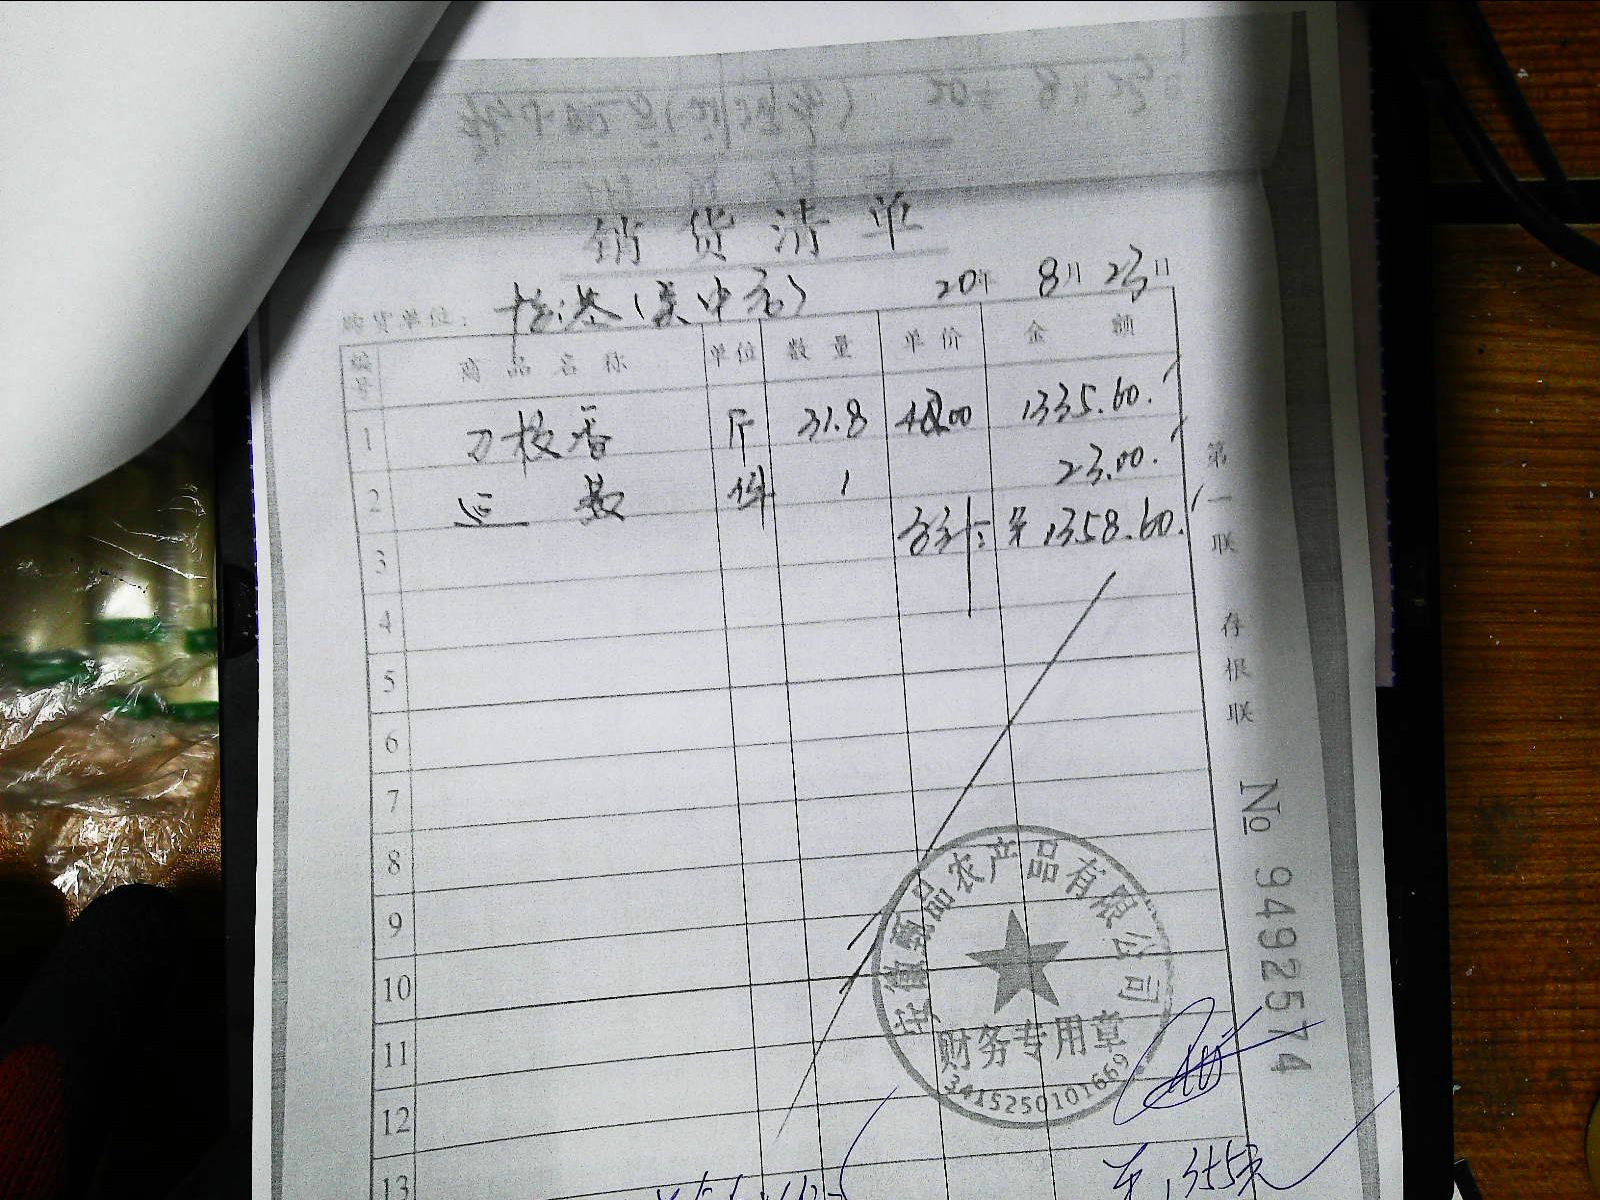 销货清单
购货单位：
20年 8月 23日
编号 商品名称 单位 数量 单价 金额
1 刀板香 斤 31.8 42.00 1335.60
2 运费 件 1 23.00
3 合计: ¥1358.60
4
5
6
7
8
9
10
11
12
13
第一联 存根联
№ 9492574
安徽 品农产品有限公司
财务专用章
3415250101669
1355元